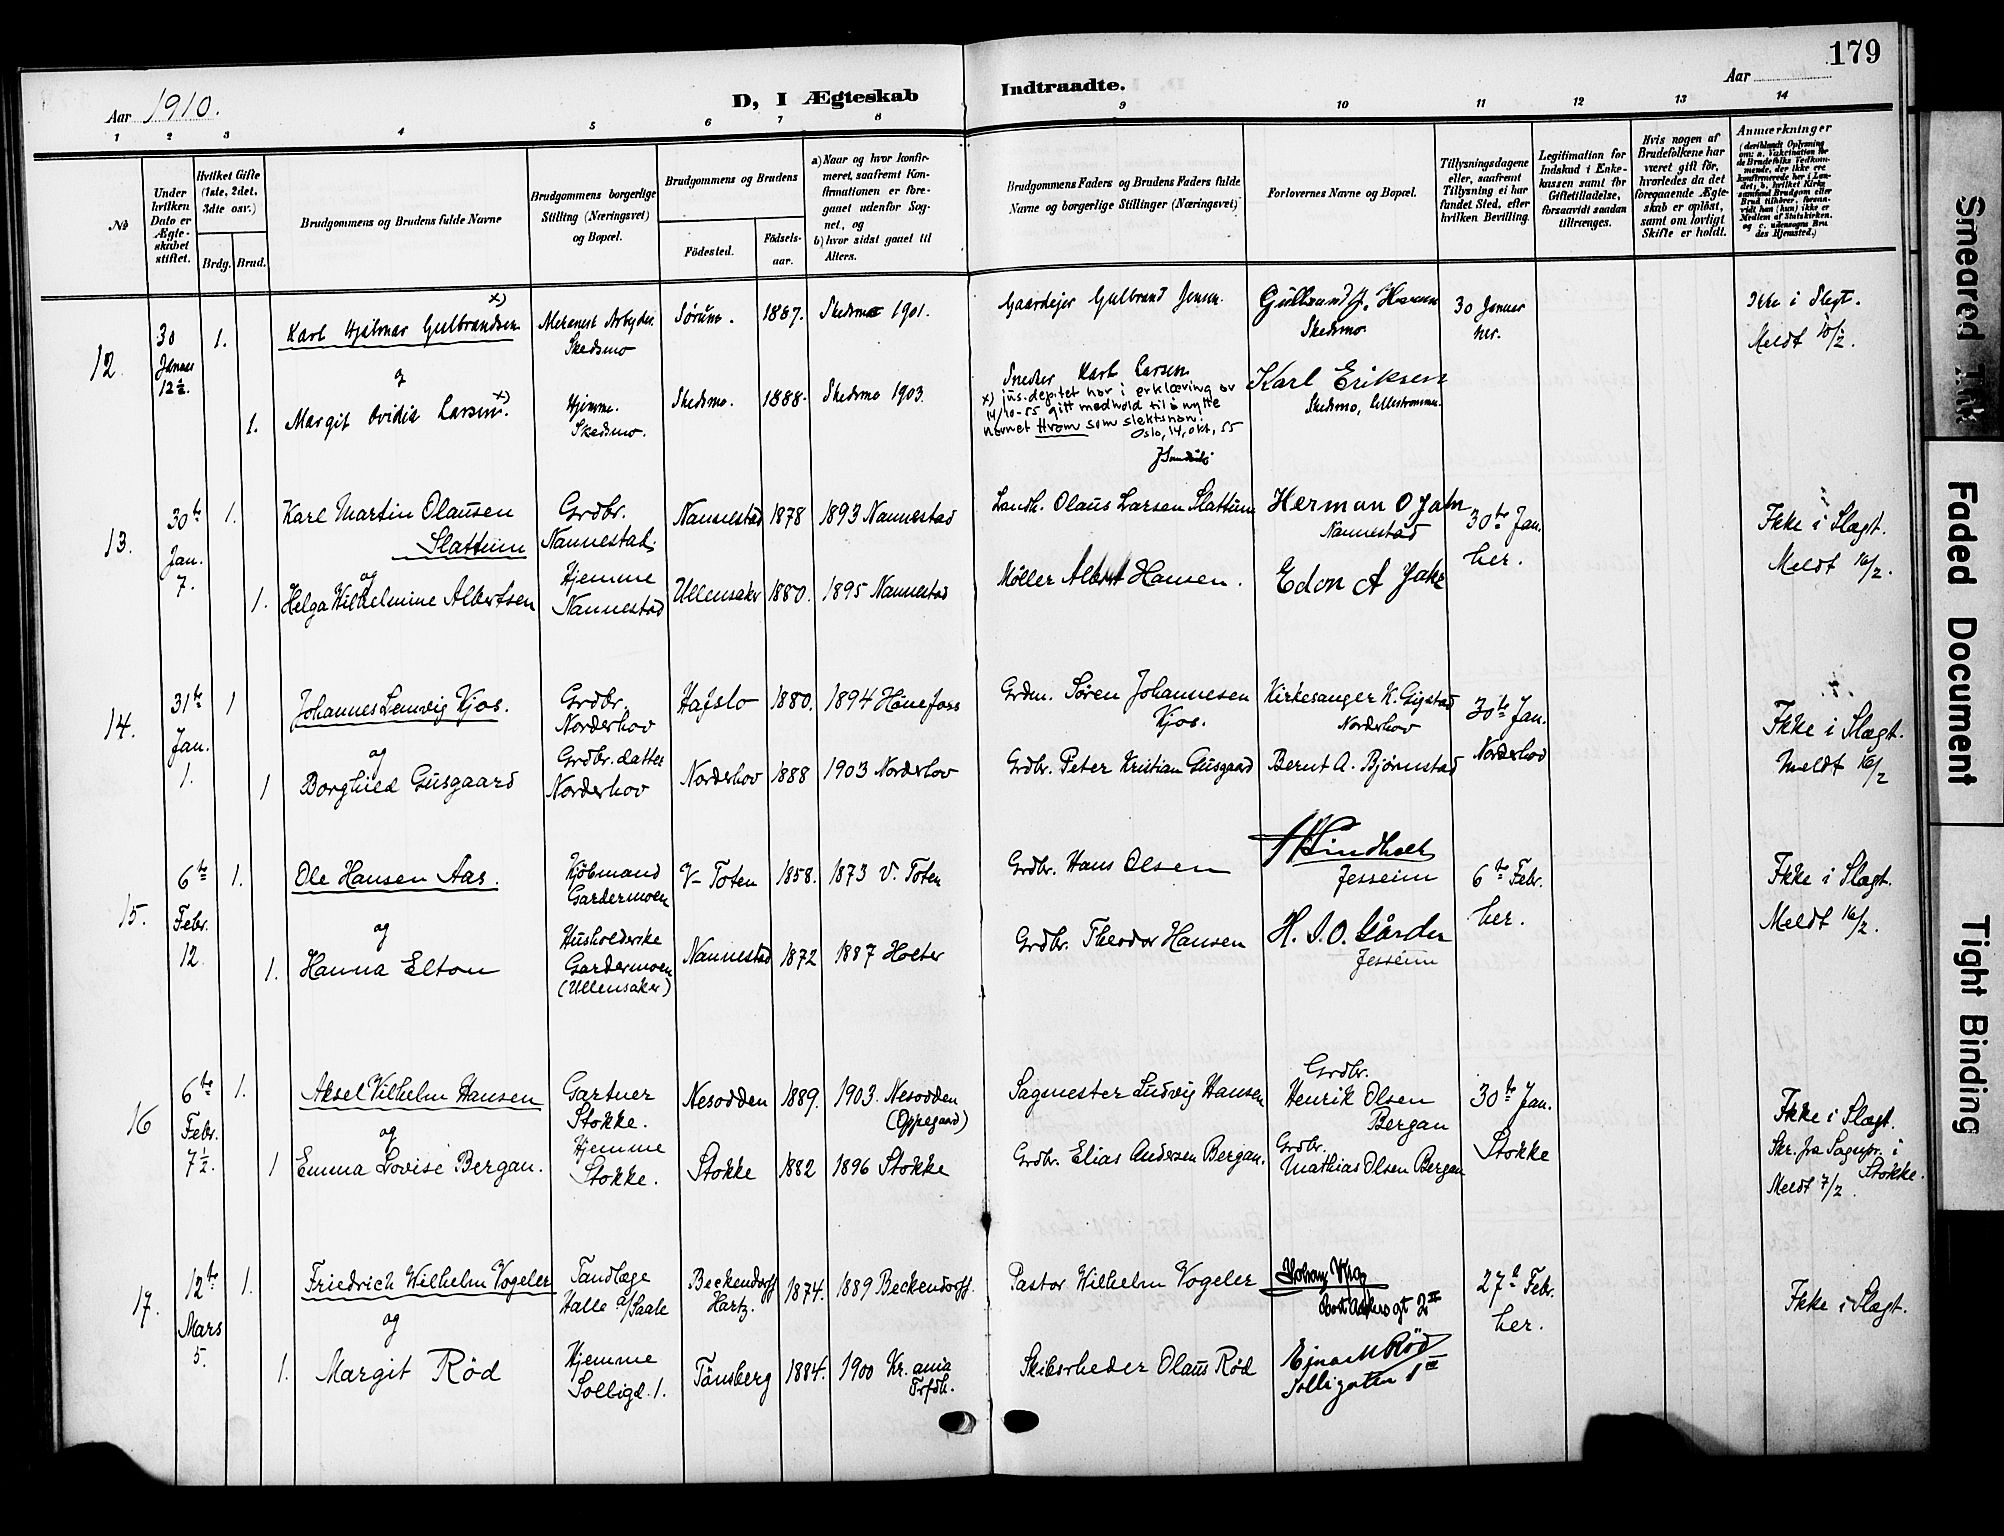 179
Aar 1910.
D, I Ægteskab Indtraadte.
Aar
1 2 3 4 5 6 7 8 9 10 11 12 13 14
No
Under hvilken Dato er Ægteskabet stiftet.
Hvilket Gifte (1ste, 2det, 3dte osv.)
Brdg. Brud.
Brudgommens og Brudens fulde Navne
Brudgommens borgerlige Stilling (Næringsvei) og Bopæl.
Brudgommens og Brudens
Fødested. Fødselsaar.
a) Naar og hvor konfirmeret, saafremt Konfirmationen er foregaaet udenfor Sognet, og
b) hvor sidst gaaet til Alters.
Brudgommens Faders og Brudens Faders fulde Navne og borgerlige Stillinger (Næringsvei)
Forlovernes Navne og Bopæl.
Tillysningsdagene eller, saafremt Tillysning ei har fundet Sted, efter hvilken Bevilling.
Legitimation for Indskud i Enkekassen samt for Giftetilladelse, forsaavidt saadan tiltrænges.
Hvis nogen af Brudefolkene har været gift før, hvorledes da det foregaaende Ægteskab er opløst, samt om lovligt Skifte er holdt.
Anmærkninger
12. 30 Januar 12½. 1. Karl Hjalmar Gulbrandsen x) Mekanist Arbyder. Skedsmo Sørum. 1887. Skedsmo 1901. Gaardejer Gulbrand Jensen. Skedsmo 30 Januar her. Ikke i Slegt. Meldt 10/2.
og
1. Margit Ovidia Larsen x). Hjemme. Skedsmo. Skedsmo. 1888. Skedsmo 1903. Snedker Karl Larsen Karl Eriksen Skedsmo, Lillestrømmen.
x) jus.depitet har i erklæring av
14/10-55 gitt medhold til å nytte
navnet Hvam som slektsnan.
Oslo, 14, okt, 55
13. 30te Jan. 7. 1. Karl Martin Olausen Slattum Grdbr. Nannestad. Nannestad 1878 1893 Nannestad Landh. Olaus Larsen Slattum Herman O Jahr Nannestad 30te Jan. her. Ikke i Slægt. Meldt 16/2.
og
1. Helga Wilhelmine Albertsen Hjemme Nannestad Ullensaker 1880. 1895 Nannestad Møller Albert Hansen. Edon A Jahr
14. 31te Jan. 1. 1 Johannes Lemvig Kjos. Grdbr. Norderhov Hafslo 1880. 1894 Hønefoss Grdm. Søren Johannesen Kjos. Kirkesanger K. Gigstad Norderhov 30te Jan. Norderhov Ikke i Slægt. Meldt 16/2
og
1 Borghild Gusgaard Grdbr. datter Norderhov Norderhov 1888 1903 Norderhov Grdbr. Peter Kristian Gusgaard Bernt A. Bjørnstad
15. 6te Febr. 12. 1. Ole Hansen Aas. Kjøbmand Gardermoen V-Toten 1858. 1873 V. Toten Grdbr. Hans Olsen Jessheim 6te Febr. her. Ikke i Slægt. Meldt 16/2.
og
1. Hanna Elton Husholderske Gardermoen (Ullensaker) Nannestad 1872 1887 Holter Grdbr. Theodor Hansen H. J. O. Gårder Jessheim
16 6te Febr. 7½. 1. Aksel Vilhelm Hansen Gartner Stokke. Nesodden 1889. 1903. Nesodden (Oppegaard) Sagmester Ludvig Hansen Grdbr. Henrik Olsen Bergan 30te Jan. Stokke Ikke i Slægt. Skr. fra Sognepr. i Stokke. Meldt 7/2.
og
1 Emma Lovise Bergan. Hjemme Stokke. Stokke 1882 1896 Stokke Grdbr. Elias Andersen Bergan. Grdbr. Mathias Olsen Bergan
17. 12te Mars 5. 1. Friedrich Wilhelm Vogeler Tandlæge Halle a/Saale Beckendorff Hartz. 1874. 1889 Beckendorff. Pastor Wilhelm Vogeler 27d Febr. her. Ikke i Slægt.
og
1. Margit Rød Hjemme Solligd. 1. Tønsberg 1884. 1900 Kr.ania Trfdk. Skibsrheder Olaus Rød Ejnar M Rød Solligaten 1
Smeared Ink
Faded Document
Tight Binding